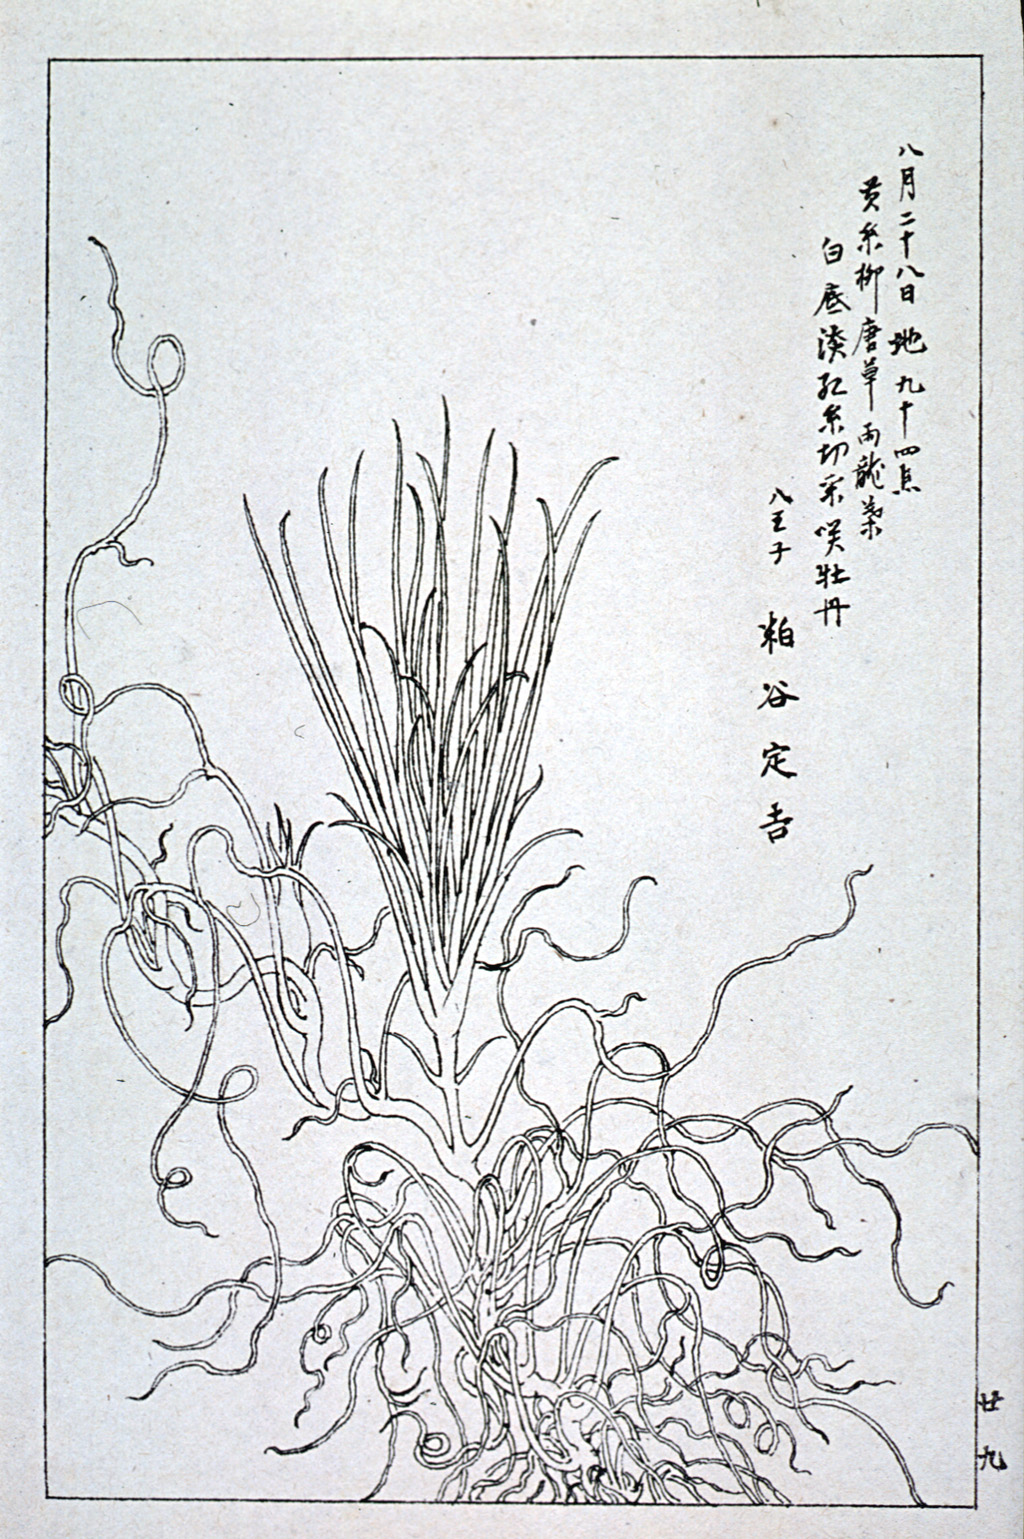 八月二十八日 地 九十四点
黄糸柳唐草雨龍葉
白底淡紅糸切采咲牡丹
八王子 粕谷定吉
廿九